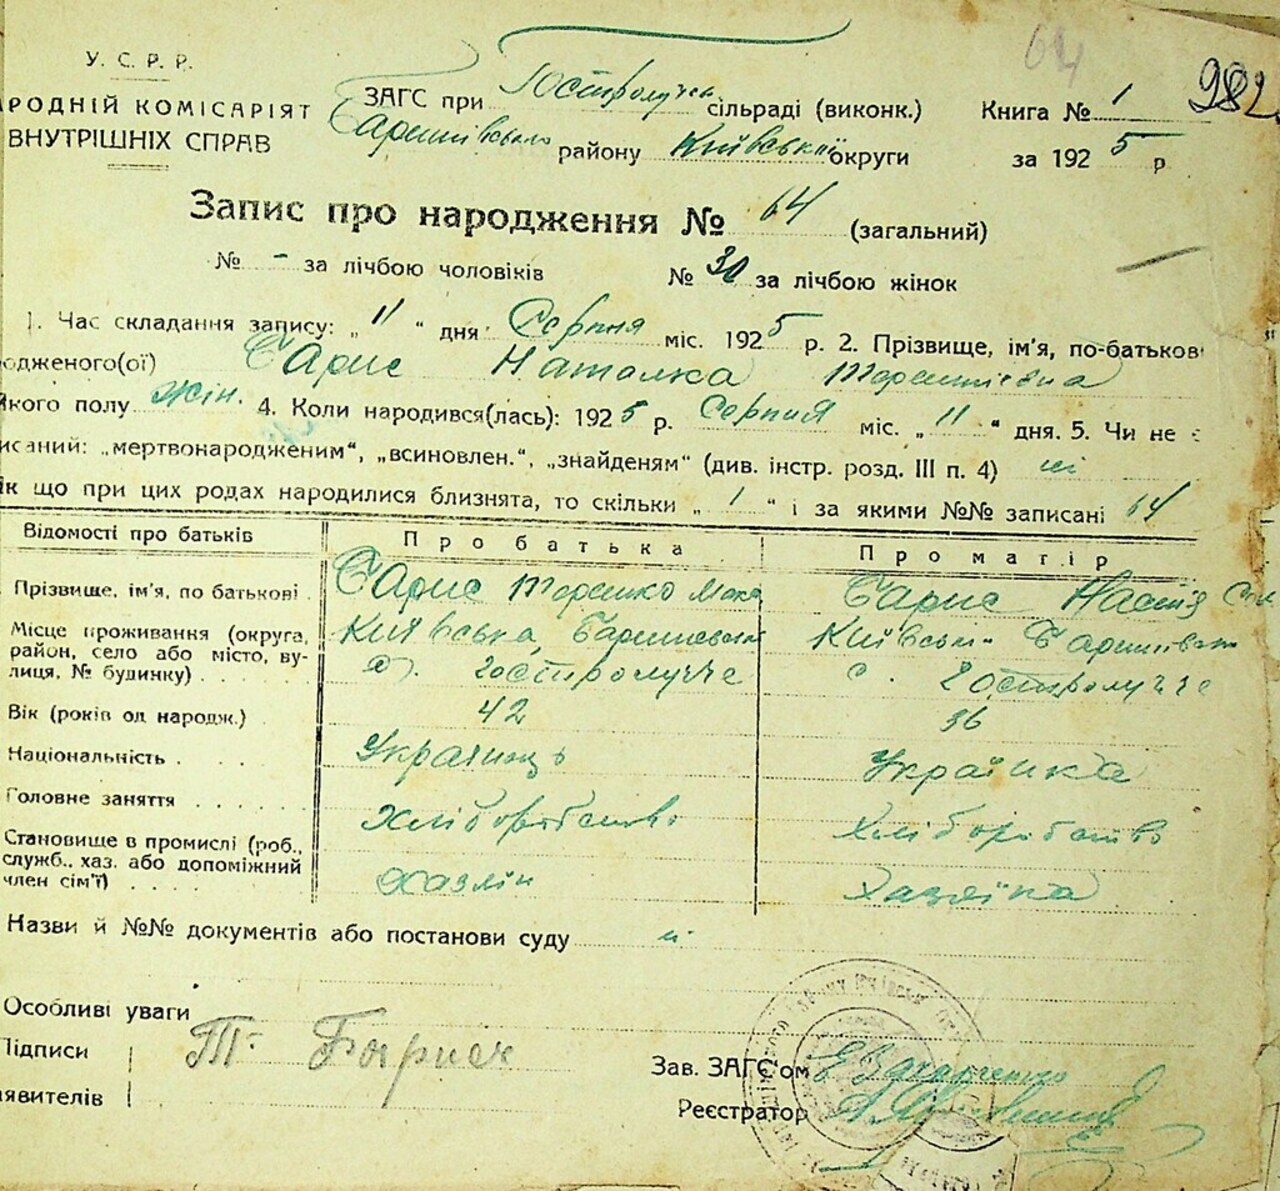 64
982
У. С. Р. Р.
РОДНІЙ КОМІСАРІЯТ
ВНУТРІШНІХ СПРАВ
ЗАГС при Гостролучча сільраді (виконк.) Книга № 1
Баришівського району Київської округи за 1925 р
Запис про народження № 64 (загальний)
№ - за лічбою чоловіків № 30 за лічбою жінок
1. Час складання запису: „11“ дня Серпня міс. 1925 р. 2. Прізвище, ім'я, по-батькові
одженого(ої) Барис Наталка Терешківна
якого полу жін. 4. Коли народився(лась): 1925 р. Серпня міс. „11“ дня. 5. Чи не є
исаний: „мертвонародженим“, „всиновлен.“, „знайденям“ (див. інстр. розд. III п. 4) ні
як що при цих родах народилися близнята, то скільки „1“ і за якими №№ записані 64
Відомості про батьків Про батька Про матір
Прізвище, ім'я, по батькові Барис Терешко Барис
Місце проживання (округа, район, село або місто, вулиця, № будинку) Київська, с. Гостролучче с. Гостролучче
Вік (років од народж.) 42 36
Національність Украінць Українка
Головне заняття Хліборобство Хліборобство
Становище в промислі (роб., служб., хаз. або допоміжний член сім'ї) Хазяін Хазяїка
Назви й №№ документів або постанови суду
Особливі уваги
Підписи Т. Барись
аявителів
Зав. ЗАГС'ом
Реєстратор